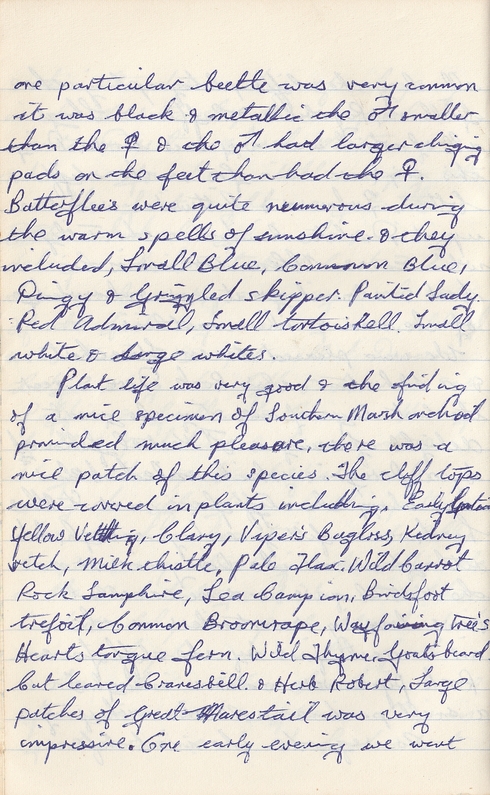 one particular beetle was very common
it was black & metallic the ♂ smaller
than the ♀ & the ♂ had larger clinging
pads on the feet than had the ♀.
Butterflies were quite numerous during
the warm spells of sunshine. & they
included, Small Blue, Common Blue,
Dingy & Grizzled skipper. Painted Lady.
Red Admiral, Small tortoishell. Small
white & large whites.
Plant life was very good & the finding
of a nice specimen of Southern Marsh orchid
provided much pleasure, there was a
nice patch of this species. The cliff tops
were covered in plants including, Early
Yellow Vetchling, Clary, Viper's Bugloss, Kidney
vetch, Milk thistle, Pale Flax. Wild Carrot
Rock Samphire, Sea Campion, Birdsfoot
trefoil, Common Broomrape, Wayfaring Tree's
Hearts tongue fern. Wild Thyme, Goatsbeard
Cut leaved Cranesbell. & Herb Robert, Large
patches of Great Marestail was very
impressive. One early evening we went